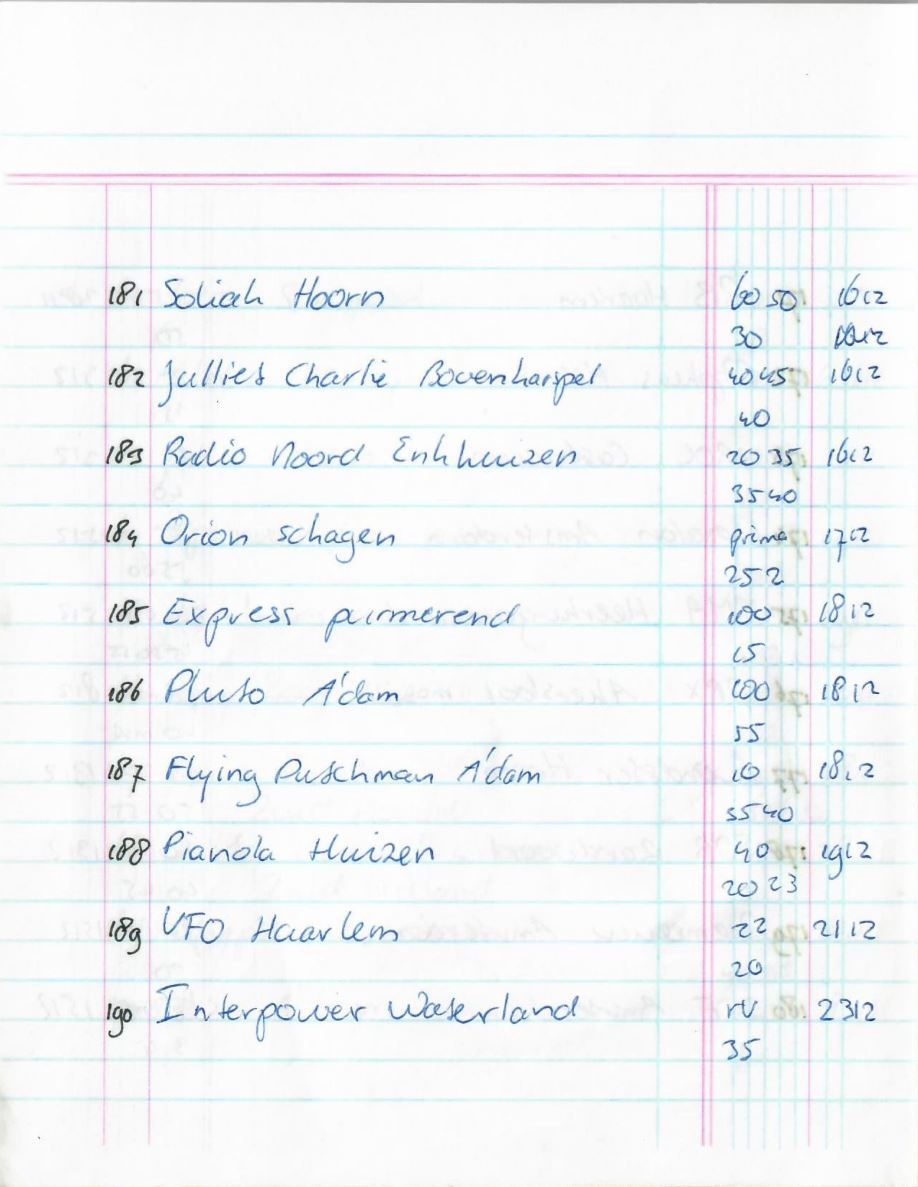 181 Soliah Hoorn 60 50 1612
30
182 Julliet Charlie Bovenkarspel 40 45 1612
40
183 Radio Noord Enkhuizen 20 35 1612
35 40
184 Orion schagen prima 1712
25 2
185 Express purmerend 100 1812
15
186 Pluto A'dam 100 1812
55
187 Flying Dutchman A'dam 10 1812
35 40
188 Pianola Huizen 40 1912
20 23
189 UFO Haarlem 22 2112
20
190 Interpower Waterland rv 2312
35